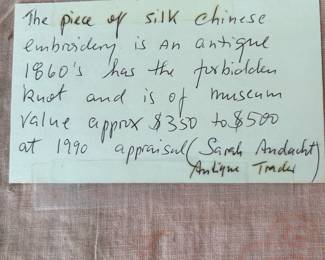 The piece of silk chinese
embroidery is an antique
1860's has the forbidden
knot and is of museum
value approx $350 to $500
at 1990 appraisal (Sarah Andacht
Antique Trader)